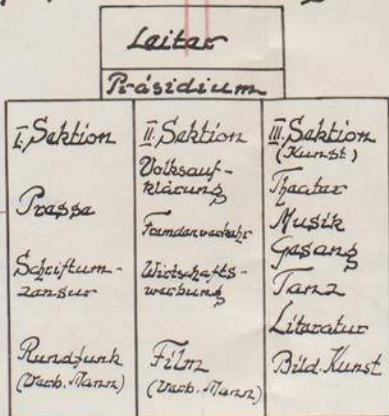 Leiter
Präsidium
I. Sektion
Presse
Schriftum-
zensur
Rundfunk
(Verb. Mann)
II. Sektion
Volksauf-
klärung
Fremdenverkehr
Wirtschafts-
werbung
Film
(Verb. Mann)
III. Sektion
(Kunst)
Theater
Musik
Gesang
Tanz
Literatur
Bild. Kunst